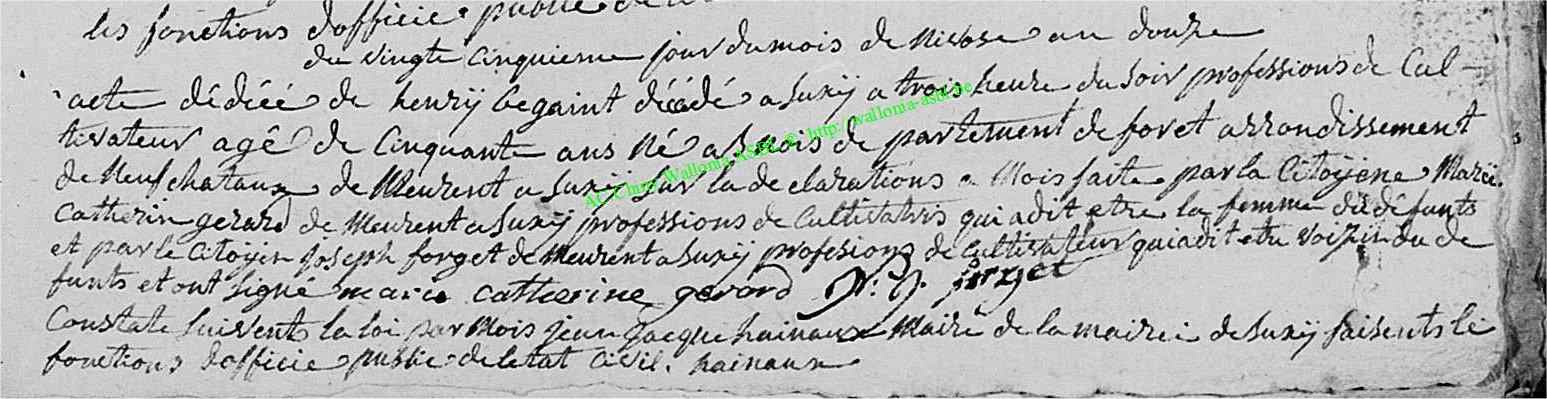 les fonctions dofficie public de
du vingte cinquieme jour du mois de Nivose an douze
acte dédiéé de henrÿ begaint décédé a Suxÿ a trois heure du Soir professions de Cul-
tivateur agé de Cinquante ans Né a de partement de foret arrondissement
de Neufchataux de Meurent a Suxÿ Sur la de clarations a Mois faite par la Citoyene Marië
Catherin gerard de Meurent a Suxÿ professions de Cultivatris qui a dit etre la femme du défunts
et par le Citoyen joseph forget de Meurent a Suxÿ profesions de Cultivateur qui a dit etre voizin du de
funts et ont Signé marie catherine gerard forget
Constaté Suivents la loi par Mois jean jacque hainaux Maire de la mairie de Suxÿ faisents le
fonctions dofficie public de letat Civil. hainaux
AC Chiny Wallonia ASBL © http://wallonia-asbl.be